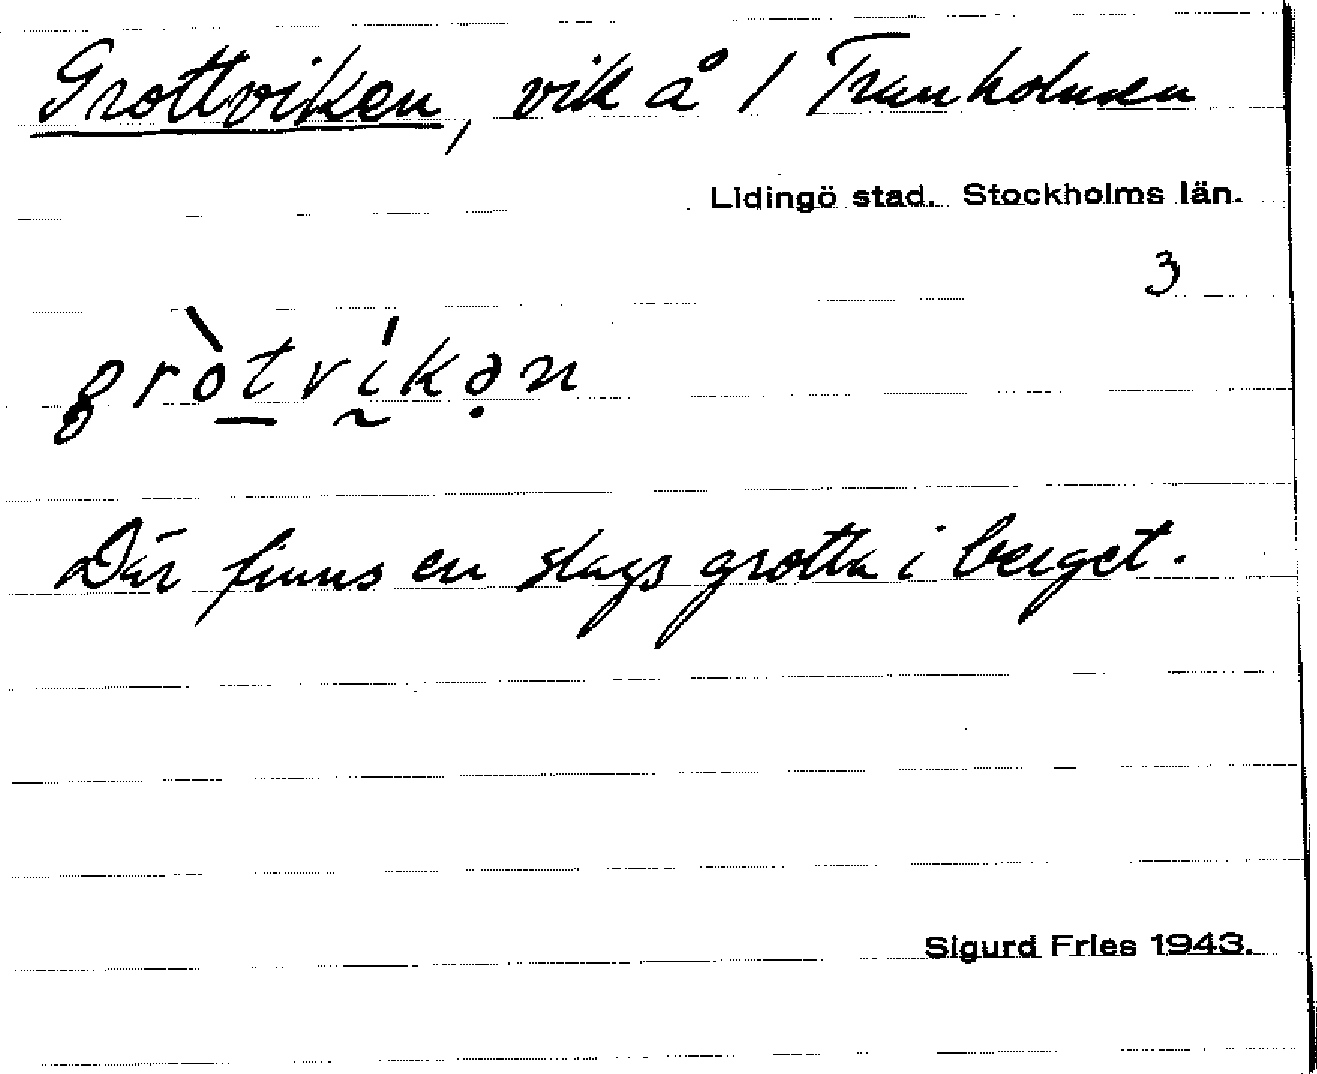 Grottviken, vik å / Tranholmen
Lidingö stad. Stockholms län.
3
gròt̲vḭ́kə̣n
Där finns en slags grotta i berget.
Sigurd Fries 1943.